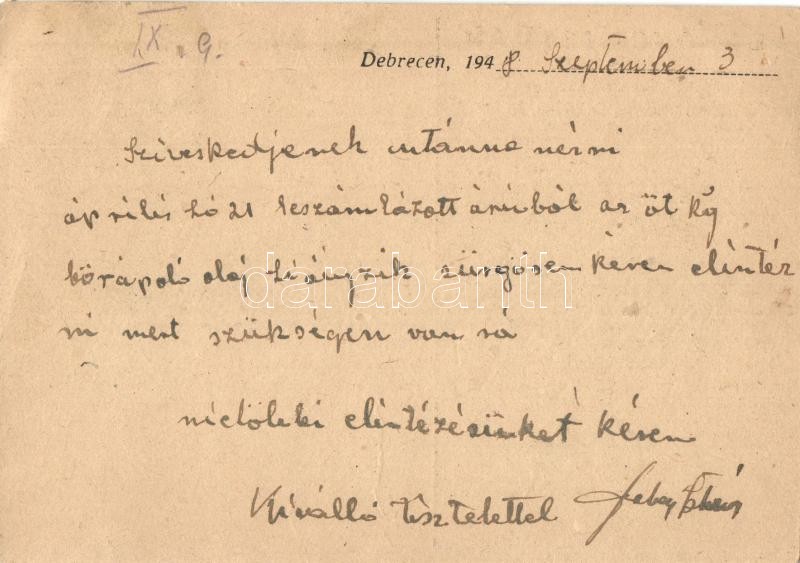 IX. 9.
Debrecen, 1948 Szeptember 3
Sziveskedjenek utánna nézni
április hó 21 leszámlázott áruból az öt kg
bőrápoló olaj hiányzik sürgősen kérem elintéz
ni mert szükségem van rá
elintézésünket kérem
Kiválló tisztelettel
darabanth